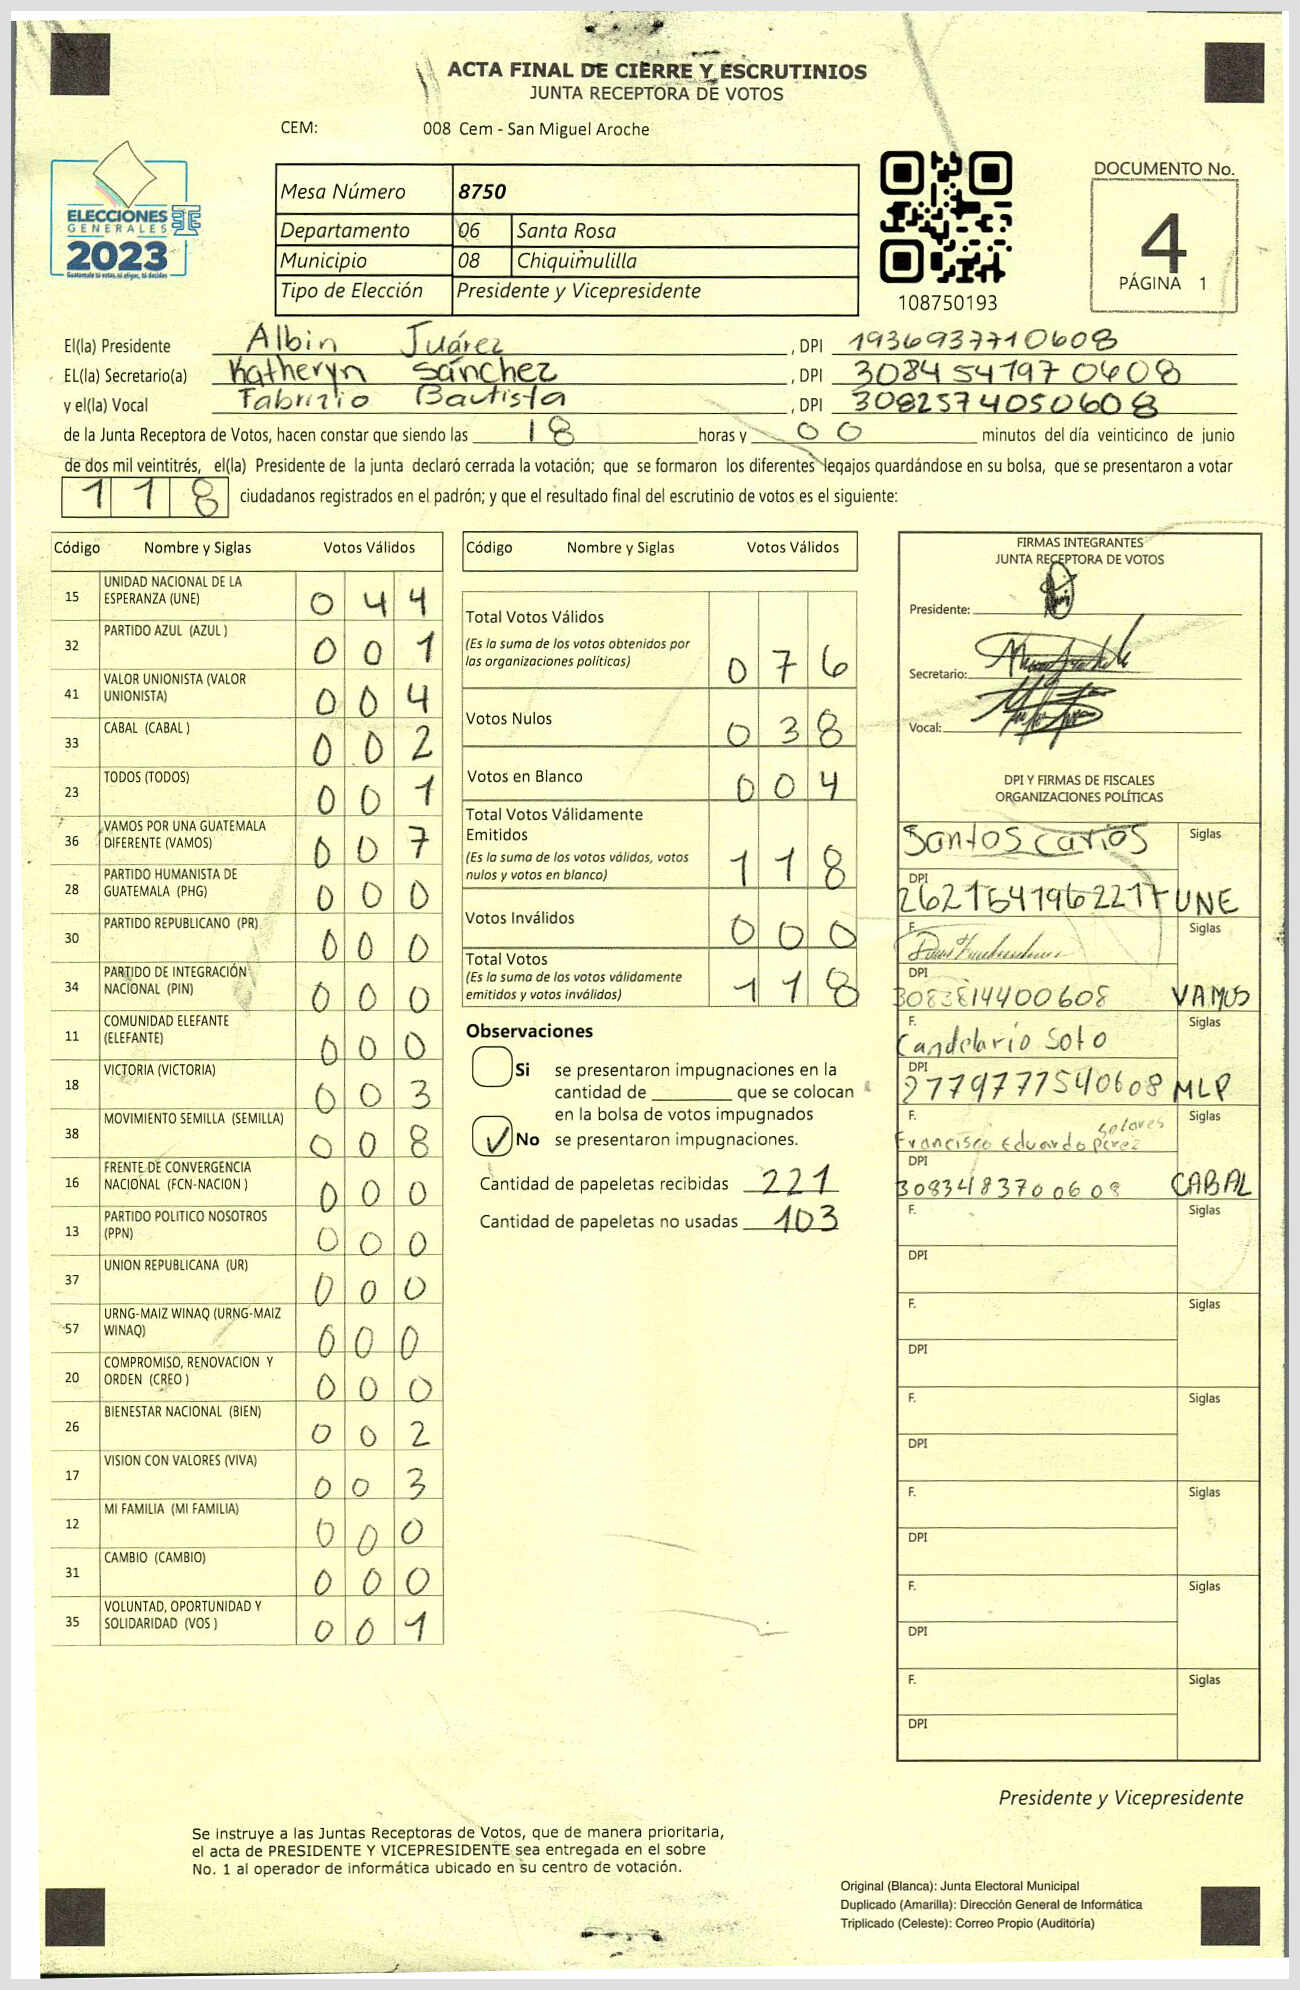 ACTA FINAL DE CIERRE Y ESCRUTINIOS
JUNTA RECEPTORA DE VOTOS
CEM: 008 Cem - San Miguel Aroche
ELECCIONES
GENERALES
2023
Guatemala tú votas, tú eliges, tú decides
Mesa Número 8750
Departamento 06 Santa Rosa
Municipio 08 Chiquimulilla
Tipo de Elección Presidente y Vicepresidente
108750193
DOCUMENTO No.
4
PÁGINA 1
El(la) Presidente Albin Juárez, DPI 1936937710608
EL(la) Secretario(a) Katheryn Sánchez, DPI 3084541970608
y el(la) Vocal Fabrizio Bautista, DPI 3082574050608
de la Junta Receptora de Votos, hacen constar que siendo las 18 horas y 00 minutos del día veinticinco de junio
de dos mil veintitrés, el(la) Presidente de la junta declaró cerrada la votación; que se formaron los diferentes legajos quardándose en su bolsa, que se presentaron a votar
118 ciudadanos registrados en el padrón; y que el resultado final del escrutinio de votos es el siguiente:
Código Nombre y Siglas Votos Válidos
15 UNIDAD NACIONAL DE LA
ESPERANZA (UNE) 044
32 PARTIDO AZUL (AZUL ) 001
41 VALOR UNIONISTA (VALOR
UNIONISTA) 004
33 CABAL (CABAL ) 002
23 TODOS (TODOS) 001
36 VAMOS POR UNA GUATEMALA
DIFERENTE (VAMOS) 007
28 PARTIDO HUMANISTA DE
GUATEMALA (PHG) 000
30 PARTIDO REPUBLICANO (PR) 000
34 PARTIDO DE INTEGRACIÓN
NACIONAL (PIN) 000
11 COMUNIDAD ELEFANTE
(ELEFANTE) 000
18 VICTORIA (VICTORIA) 003
38 MOVIMIENTO SEMILLA (SEMILLA) 008
16 FRENTE DE CONVERGENCIA
NACIONAL (FCN-NACION ) 000
13 PARTIDO POLITICO NOSOTROS
(PPN) 000
37 UNION REPUBLICANA (UR) 000
57 URNG-MAIZ WINAQ (URNG-MAIZ
WINAQ) 000
20 COMPROMISO, RENOVACION Y
ORDEN (CREO ) 000
26 BIENESTAR NACIONAL (BIEN) 002
17 VISION CON VALORES (VIVA) 003
12 MI FAMILIA (MI FAMILIA) 000
31 CAMBIO (CAMBIO) 000
35 VOLUNTAD, OPORTUNIDAD Y
SOLIDARIDAD (VOS ) 001
Código Nombre y Siglas Votos Válidos
Total Votos Válidos
(Es la suma de los votos obtenidos por
las organizaciones políticas) 076
Votos Nulos 038
Votos en Blanco 004
Total Votos Válidamente
Emitidos
(Es la suma de los votos válidos, votos
nulos y votos en blanco) 118
Votos Inválidos 000
Total Votos
(Es la suma de los votos válidamente
emitidos y votos inválidos) 118
Observaciones
Si se presentaron impugnaciones en la
cantidad de ________ que se colocan
en la bolsa de votos impugnados
✓ No se presentaron impugnaciones.
Cantidad de papeletas recibidas 221
Cantidad de papeletas no usadas 103
FIRMAS INTEGRANTES
JUNTA RECEPTORA DE VOTOS
Presidente:
Secretario:
Vocal:
DPI Y FIRMAS DE FISCALES
ORGANIZACIONES POLÍTICAS
Santos Carlos Siglas
DPI
2621541962217 UNE
F. Siglas
DPI
3083814400608 VAMOS
F. Siglas
Candelario Soto
DPI
2779777540608 MLP
F. Siglas
Solares
Francisco Eduardo Pérez
DPI
3083483700608 CABAL
F. Siglas
DPI
F. Siglas
DPI
F. Siglas
DPI
F. Siglas
DPI
F. Siglas
DPI
F. Siglas
DPI
Presidente y Vicepresidente
Se instruye a las Juntas Receptoras de Votos, que de manera prioritaria,
el acta de PRESIDENTE Y VICEPRESIDENTE sea entregada en el sobre
No. 1 al operador de informática ubicado en su centro de votación.
Original (Blanca): Junta Electoral Municipal
Duplicado (Amarilla): Dirección General de Informática
Triplicado (Celeste): Correo Propio (Auditoría)